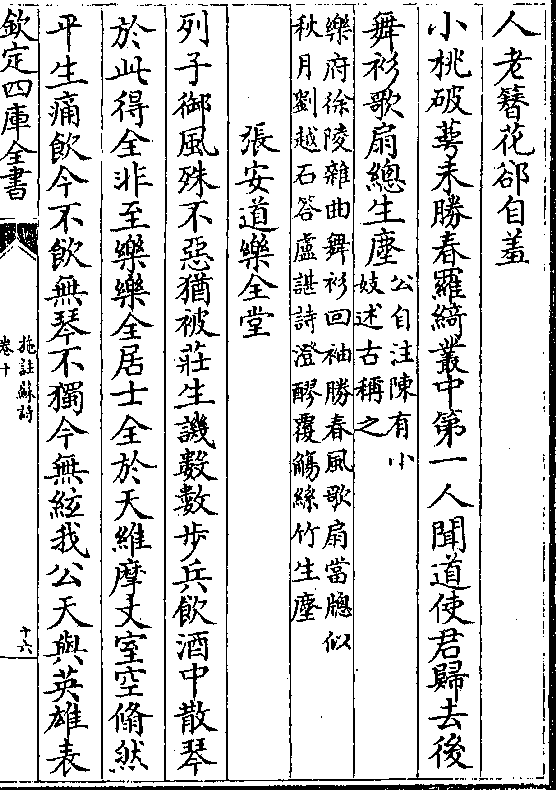 人老簪花卻自羞
小桃破萼未勝春羅綺叢中第一人聞道使君歸去後
舞衫歌扇總生塵公自注陳有小
妓述古稱之
樂府徐陵雜曲舞衫回袖勝春風歌扇當牕似
秋月劉越石答盧諶詩澄醪覆觴絲竹生塵
張安道樂全堂
列子御風殊不惡猶被莊生譏數數步兵飲酒中散琴
於此得全非至樂樂全居士全於天維摩丈室空翛然
平生痛飲今不飲無琴不獨今無絃我公天與英雄表
欽定四庫全書
施註蘇詩
卷十
十六